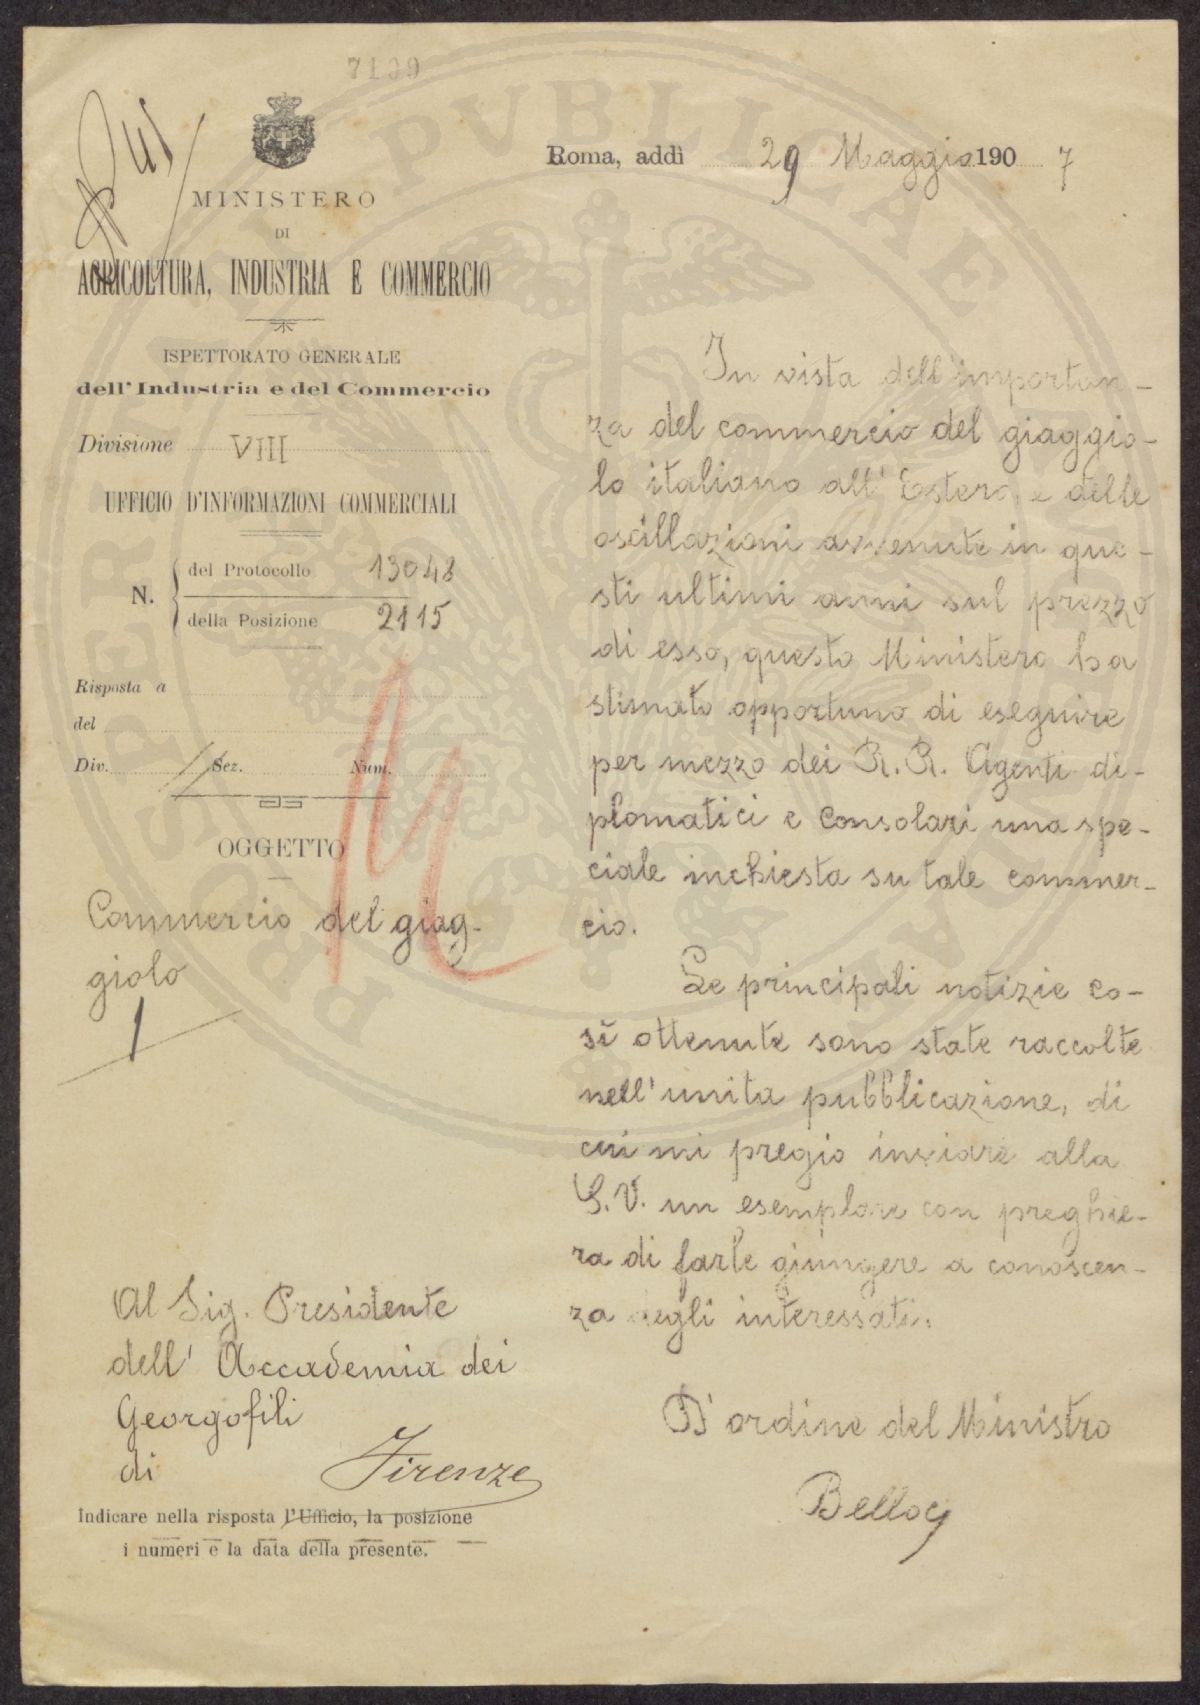 7139
MINISTERO
DI
AGRICOLTURA, INDUSTRIA E COMMERCIO
ISPETTORATO GENERALE
dell'Industria e del Commercio
Divisione VIII
UFFICIO D'INFORMAZIONI COMMERCIALI
N. del Protocollo 13048
della Posizione 2115
Risposta a
del
Div. Sez. Num.
OGGETTO
Commercio del giag-
giolo
1
Al Sig. Presidente
dell' Accademia dei
Georgofili
di Firenze
Indicare nella risposta l'Ufficio, la posizione
i numeri e la data della presente.
Roma, addì 29 Maggio 1907
In vista dell'importan-
za del commercio del giaggio-
lo italiano all' Estero, e delle
oscillazioni avvenute in que-
sti ultimi anni sul prezzo
di esso, questo Ministero ha
stimato opportuno di eseguire
per mezzo dei R. R. Agenti di-
plomatici e Consolari una spe-
ciale inchiesta su tale commer-
cio.
Le principali notizie co-
sì ottenute sono state raccolte
nell'unita pubblicazione, di
cui mi pregio inviare alla
S. V. un esemplare con preghie-
ra di farle giungere a conoscen-
za degli interessati.
D'ordine del Ministro